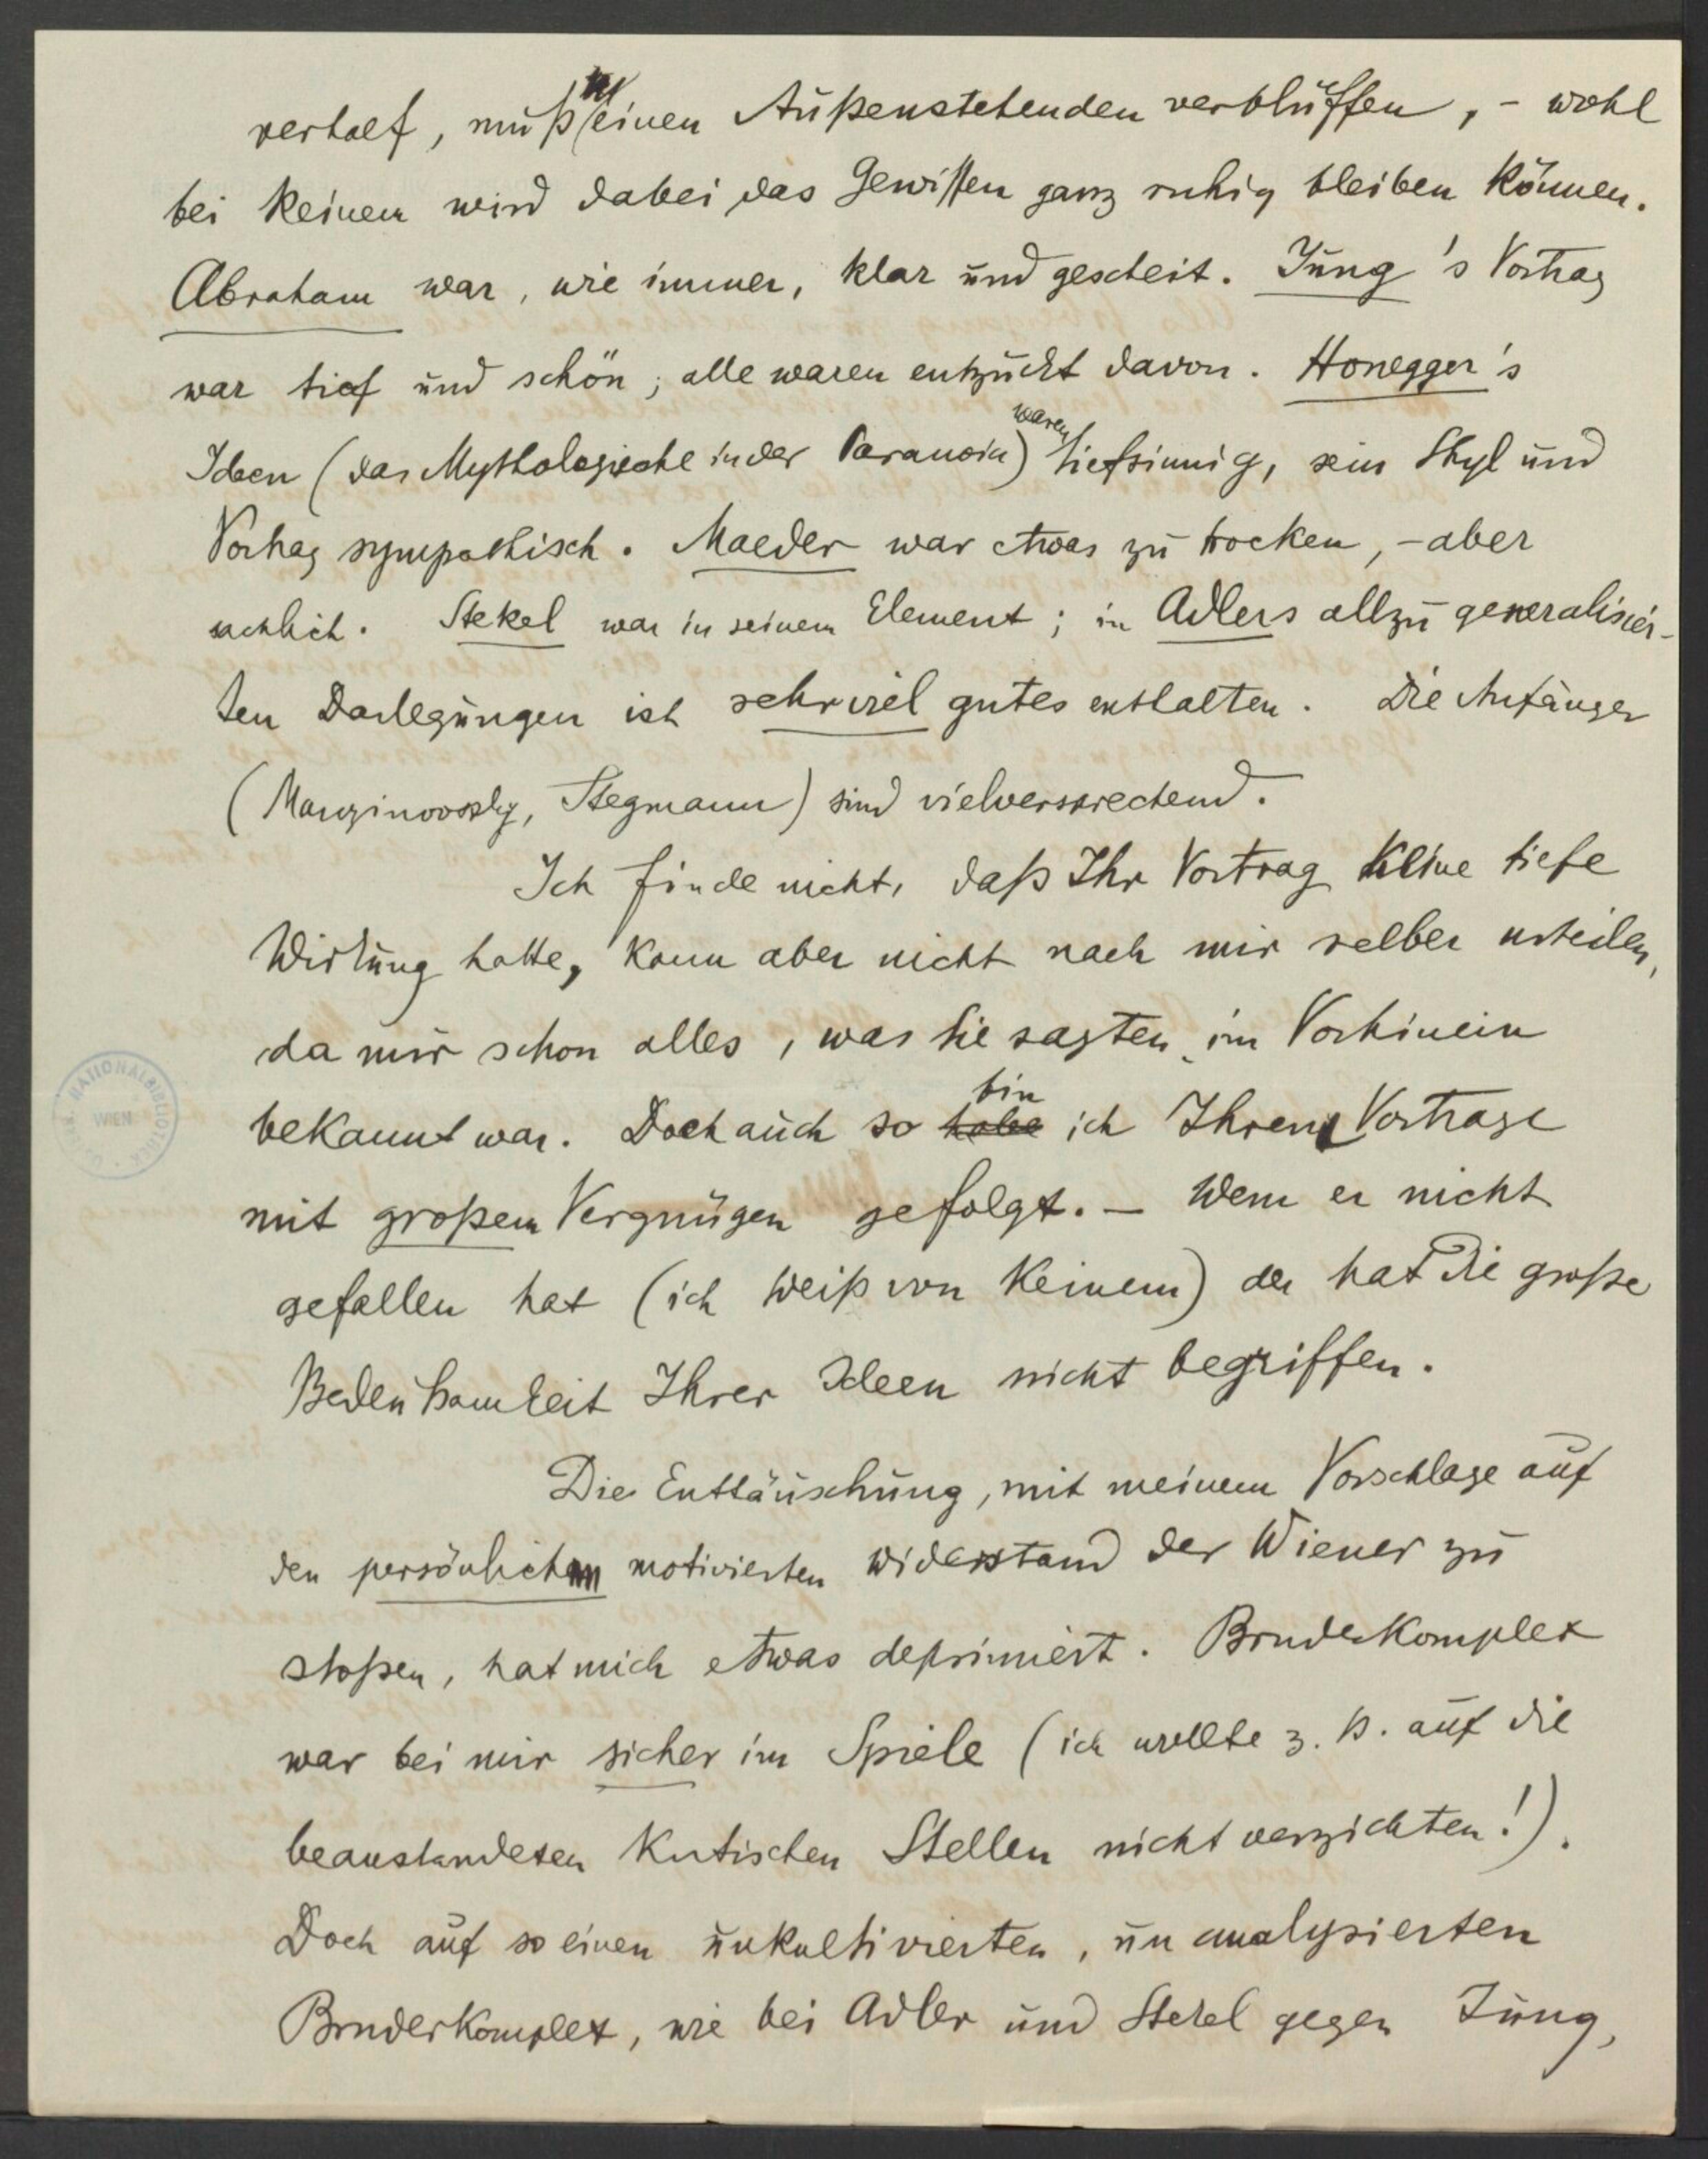 verhalf, muß einen Außenstehenden verblüffen, – wohl
bei keinem wird dabei das Gewissen ganz ruhig bleiben können.
Abraham war, wie immer, klar und gescheit. Jung's Vortrag
war tief und schön; alle waren entzückt davon. Honegger's
Ideen (das Mythologische in der Paranoia) waren tiefsinnig, sein Styl und
Vortrag sympathisch. Maeder war etwas zu trocken, – aber
sachlich. Stekel war in seinem Element; in Adlers allzu generalisier-
ten Darlegungen ist sehr viel gutes enthalten. Die Anfänger
(Marzinovsky, Stegmann) sind vielversprechend.
Ich finde nicht, daß Ihr Vortrag keine tiefe
Wirkung hatte, kann aber nicht nach mir selber urteilen,
da mir schon alles, was Sie sagten, im Vorhinein
bekannt war. Doch auch so habe bin ich Ihrem Vortrage
mit großem Vergnügen gefolgt. – Wem er nicht
gefallen hat (ich weiß von Keinem) der hat die große
Bedeutsamkeit Ihrer Ideen nicht begriffen.
Die Enttäuschung, mit meinem Vorschlage auf
den persönlich motivierten Widerstand der Wiener zu
stoßen, hat mich etwas deprimiert. Bruderkomplex
war bei mir sicher im Spiele (ich wollte z. B. auf die
beanstandeten kritischen Stellen nicht verzichten!).
Doch auf so einen unkultivierten, unanalysierten
Bruderkomplex, wie bei Adler und Stekel gegen Jung,
NATIONALBIBLIOTHEK
WIEN